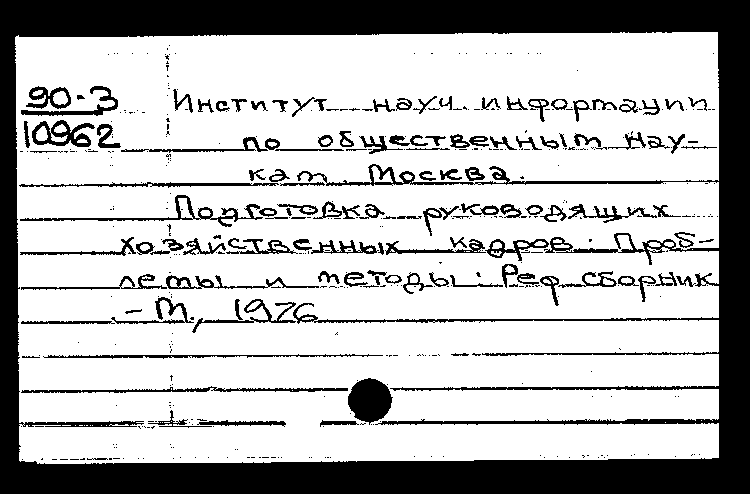 90-3 Институт науч. информации
10962 по общественным нау-
кам. Москва.
Подготовка руководящих
хозяйственных кадров: Проб-
лемы и методы: Реф. сборник
. – М., 1976